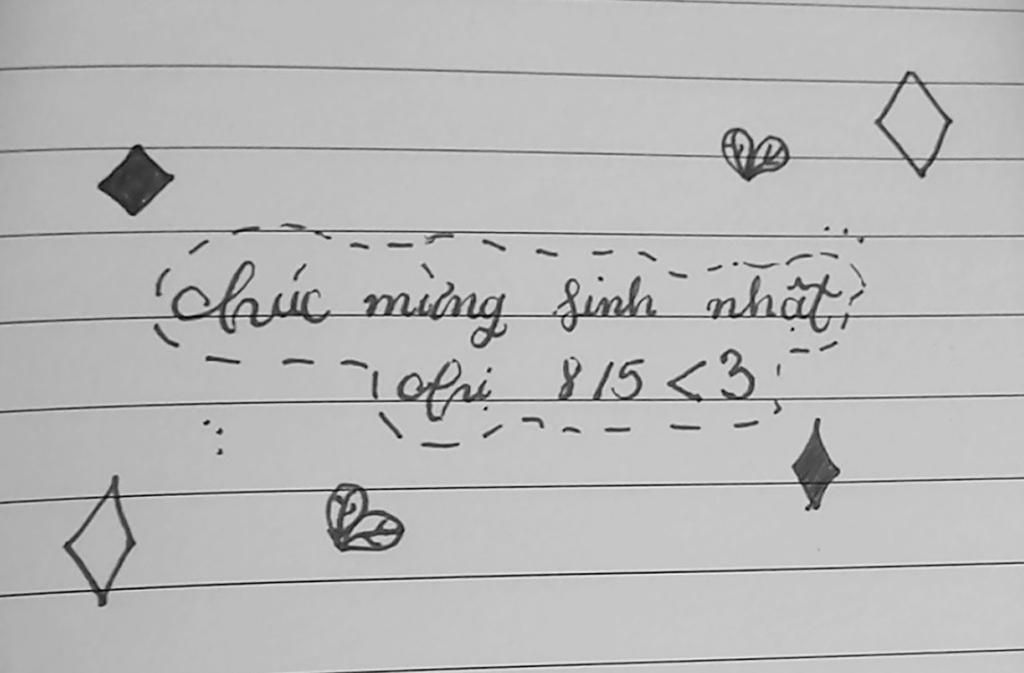 Chúc mừng sinh nhật
chị 815 <3